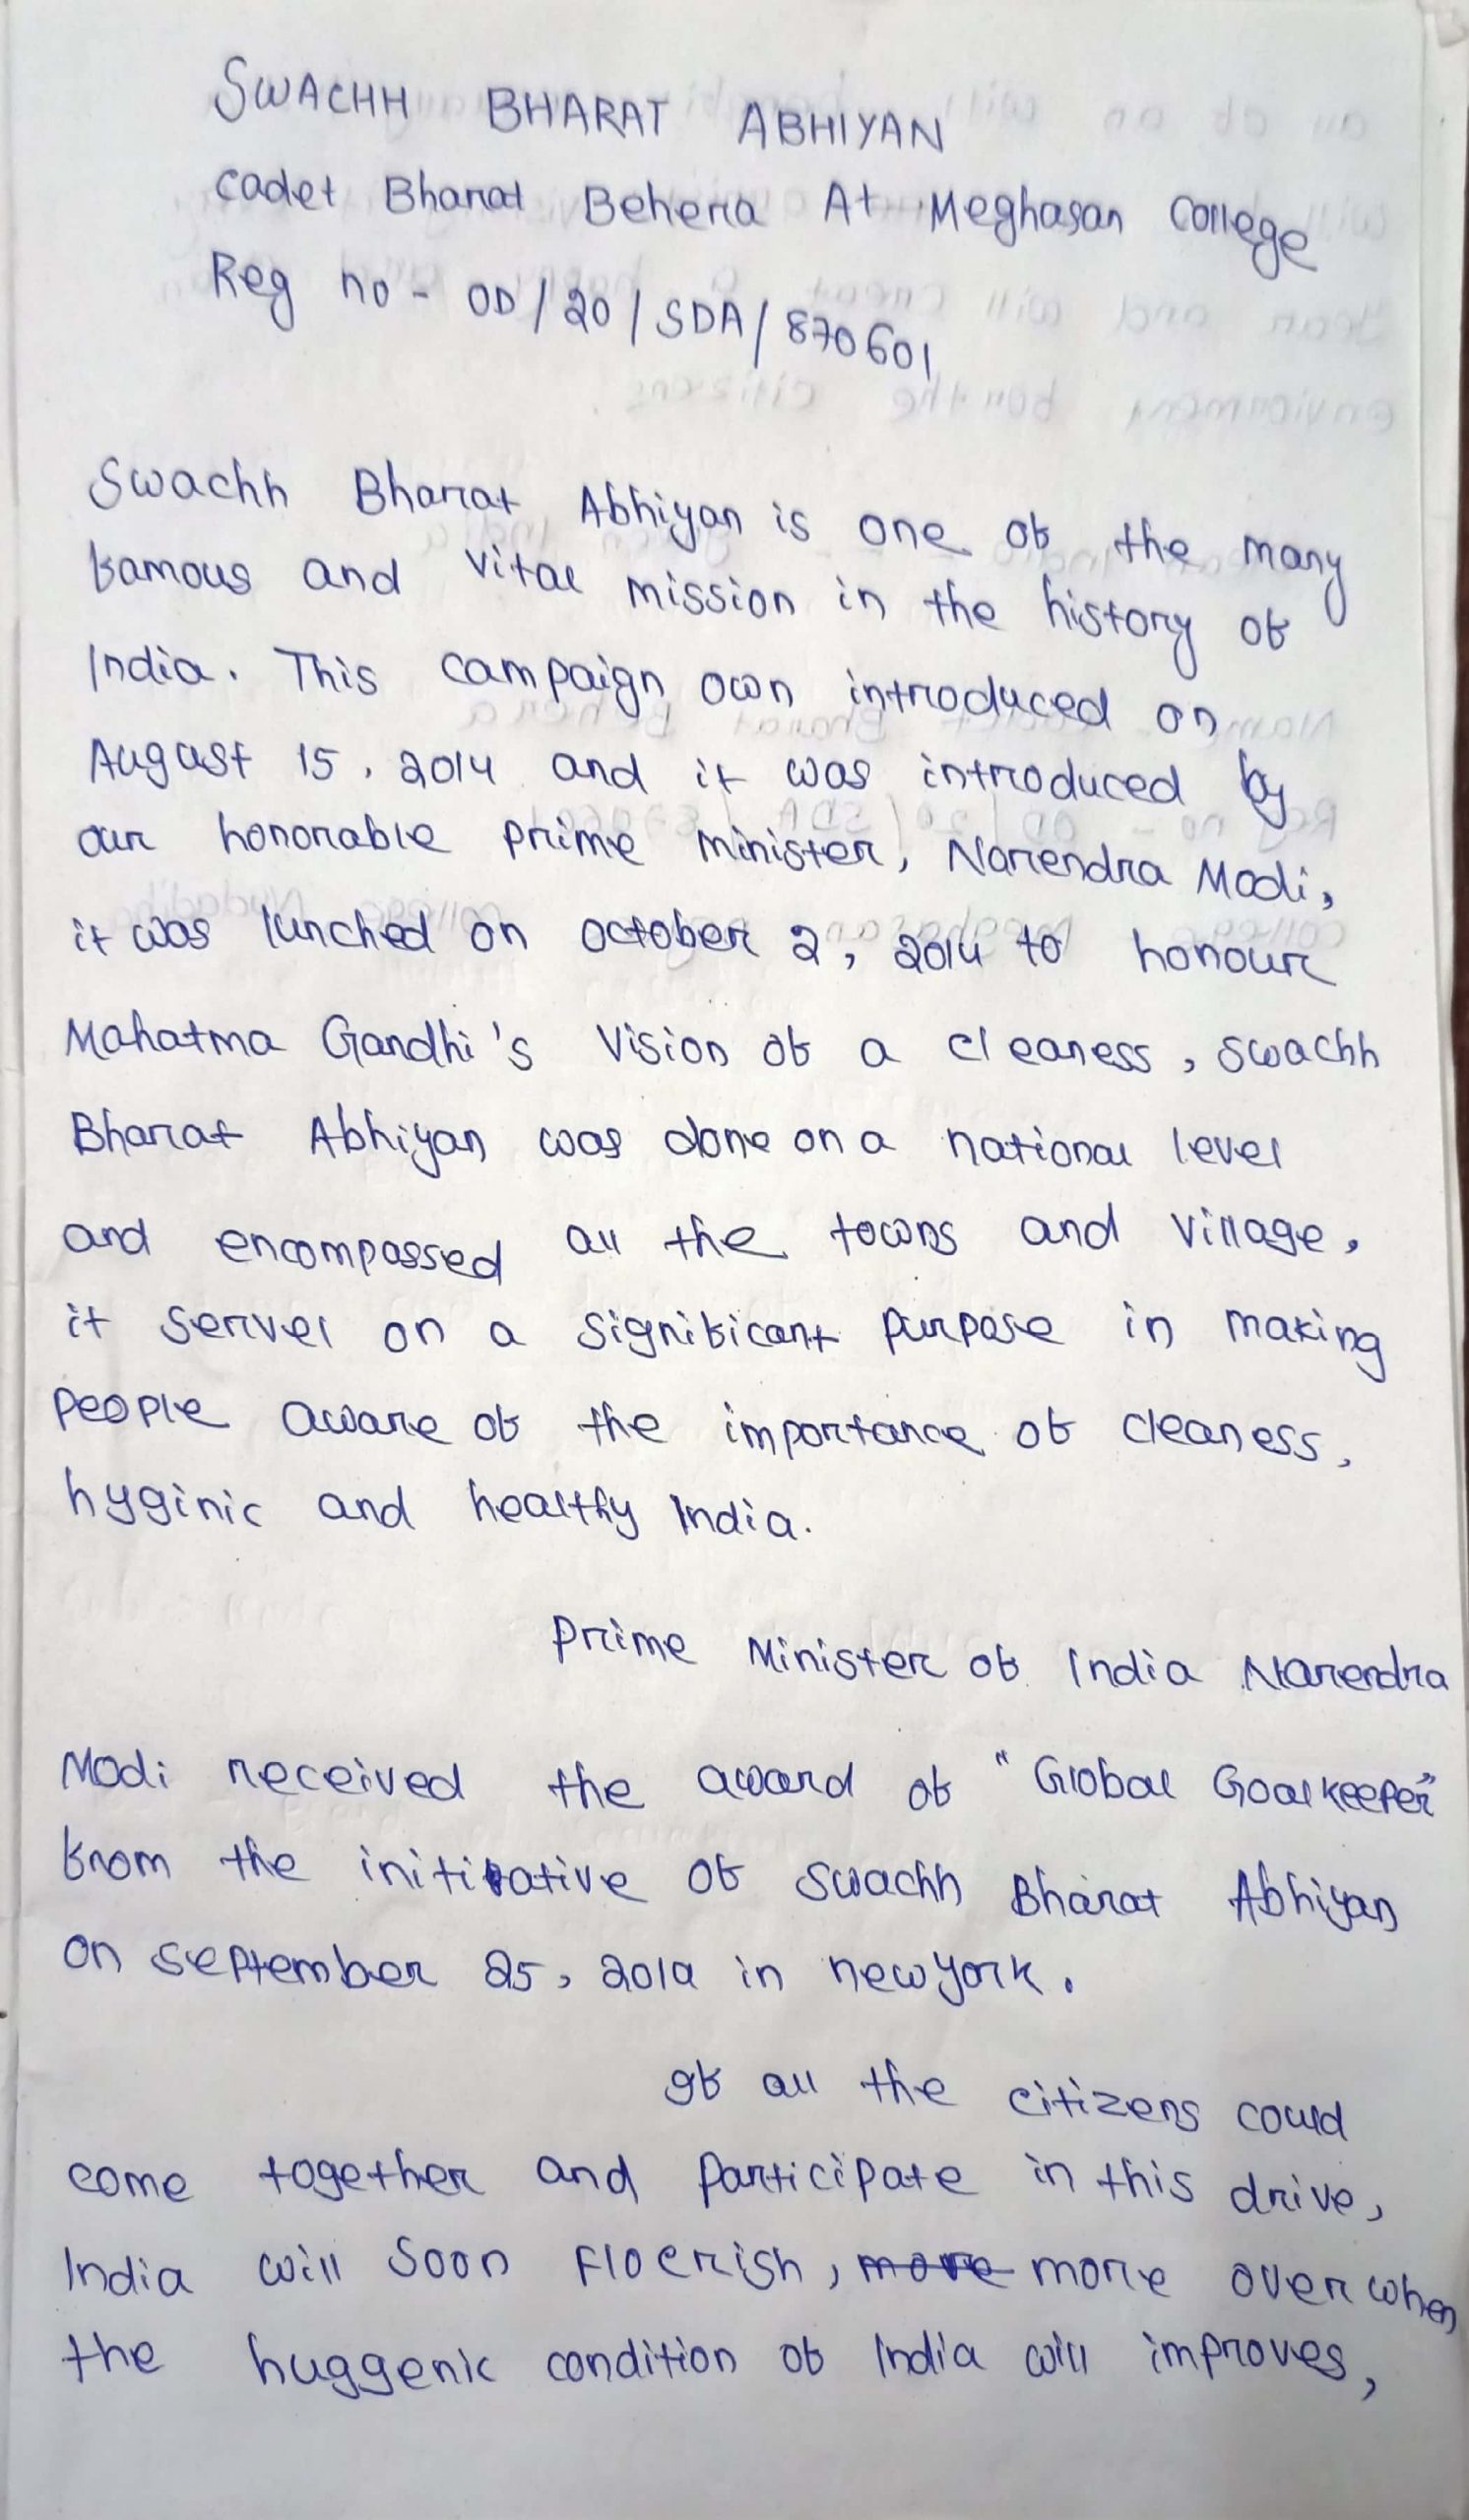 SWACHH BHARAT ABHIYAN
Cadet Bharat Behera At Meghasan College
Reg no - OD/20/SDA/870601
Swachh Bharat Abhiyan is one of the many
famous and vital mission in the history of
India. This campaign own introduced on
August 15, 2014 and it was introduced by
our honorable prime minister, Narendra Modi,
it was lunched on october 2, 2014 to honour
Mahatma Gandhi's vision of a cleaness, swachh
Bharat Abhiyan was done on a national level
and encompassed all the towns and village,
it servel on a significant purpose in making
people aware of the importance of cleaness,
hyginic and healthy India.
Prime Minister of India Narendra
Modi received the award of "Global Goalkeeper"
from the initiative of swachh Bharat Abhiyan
on september 25, 2019 in newyork.
If all the citizens could
come together and participate in this drive,
India will soon floerish, more more over when
the huggenic condition of India will improves,